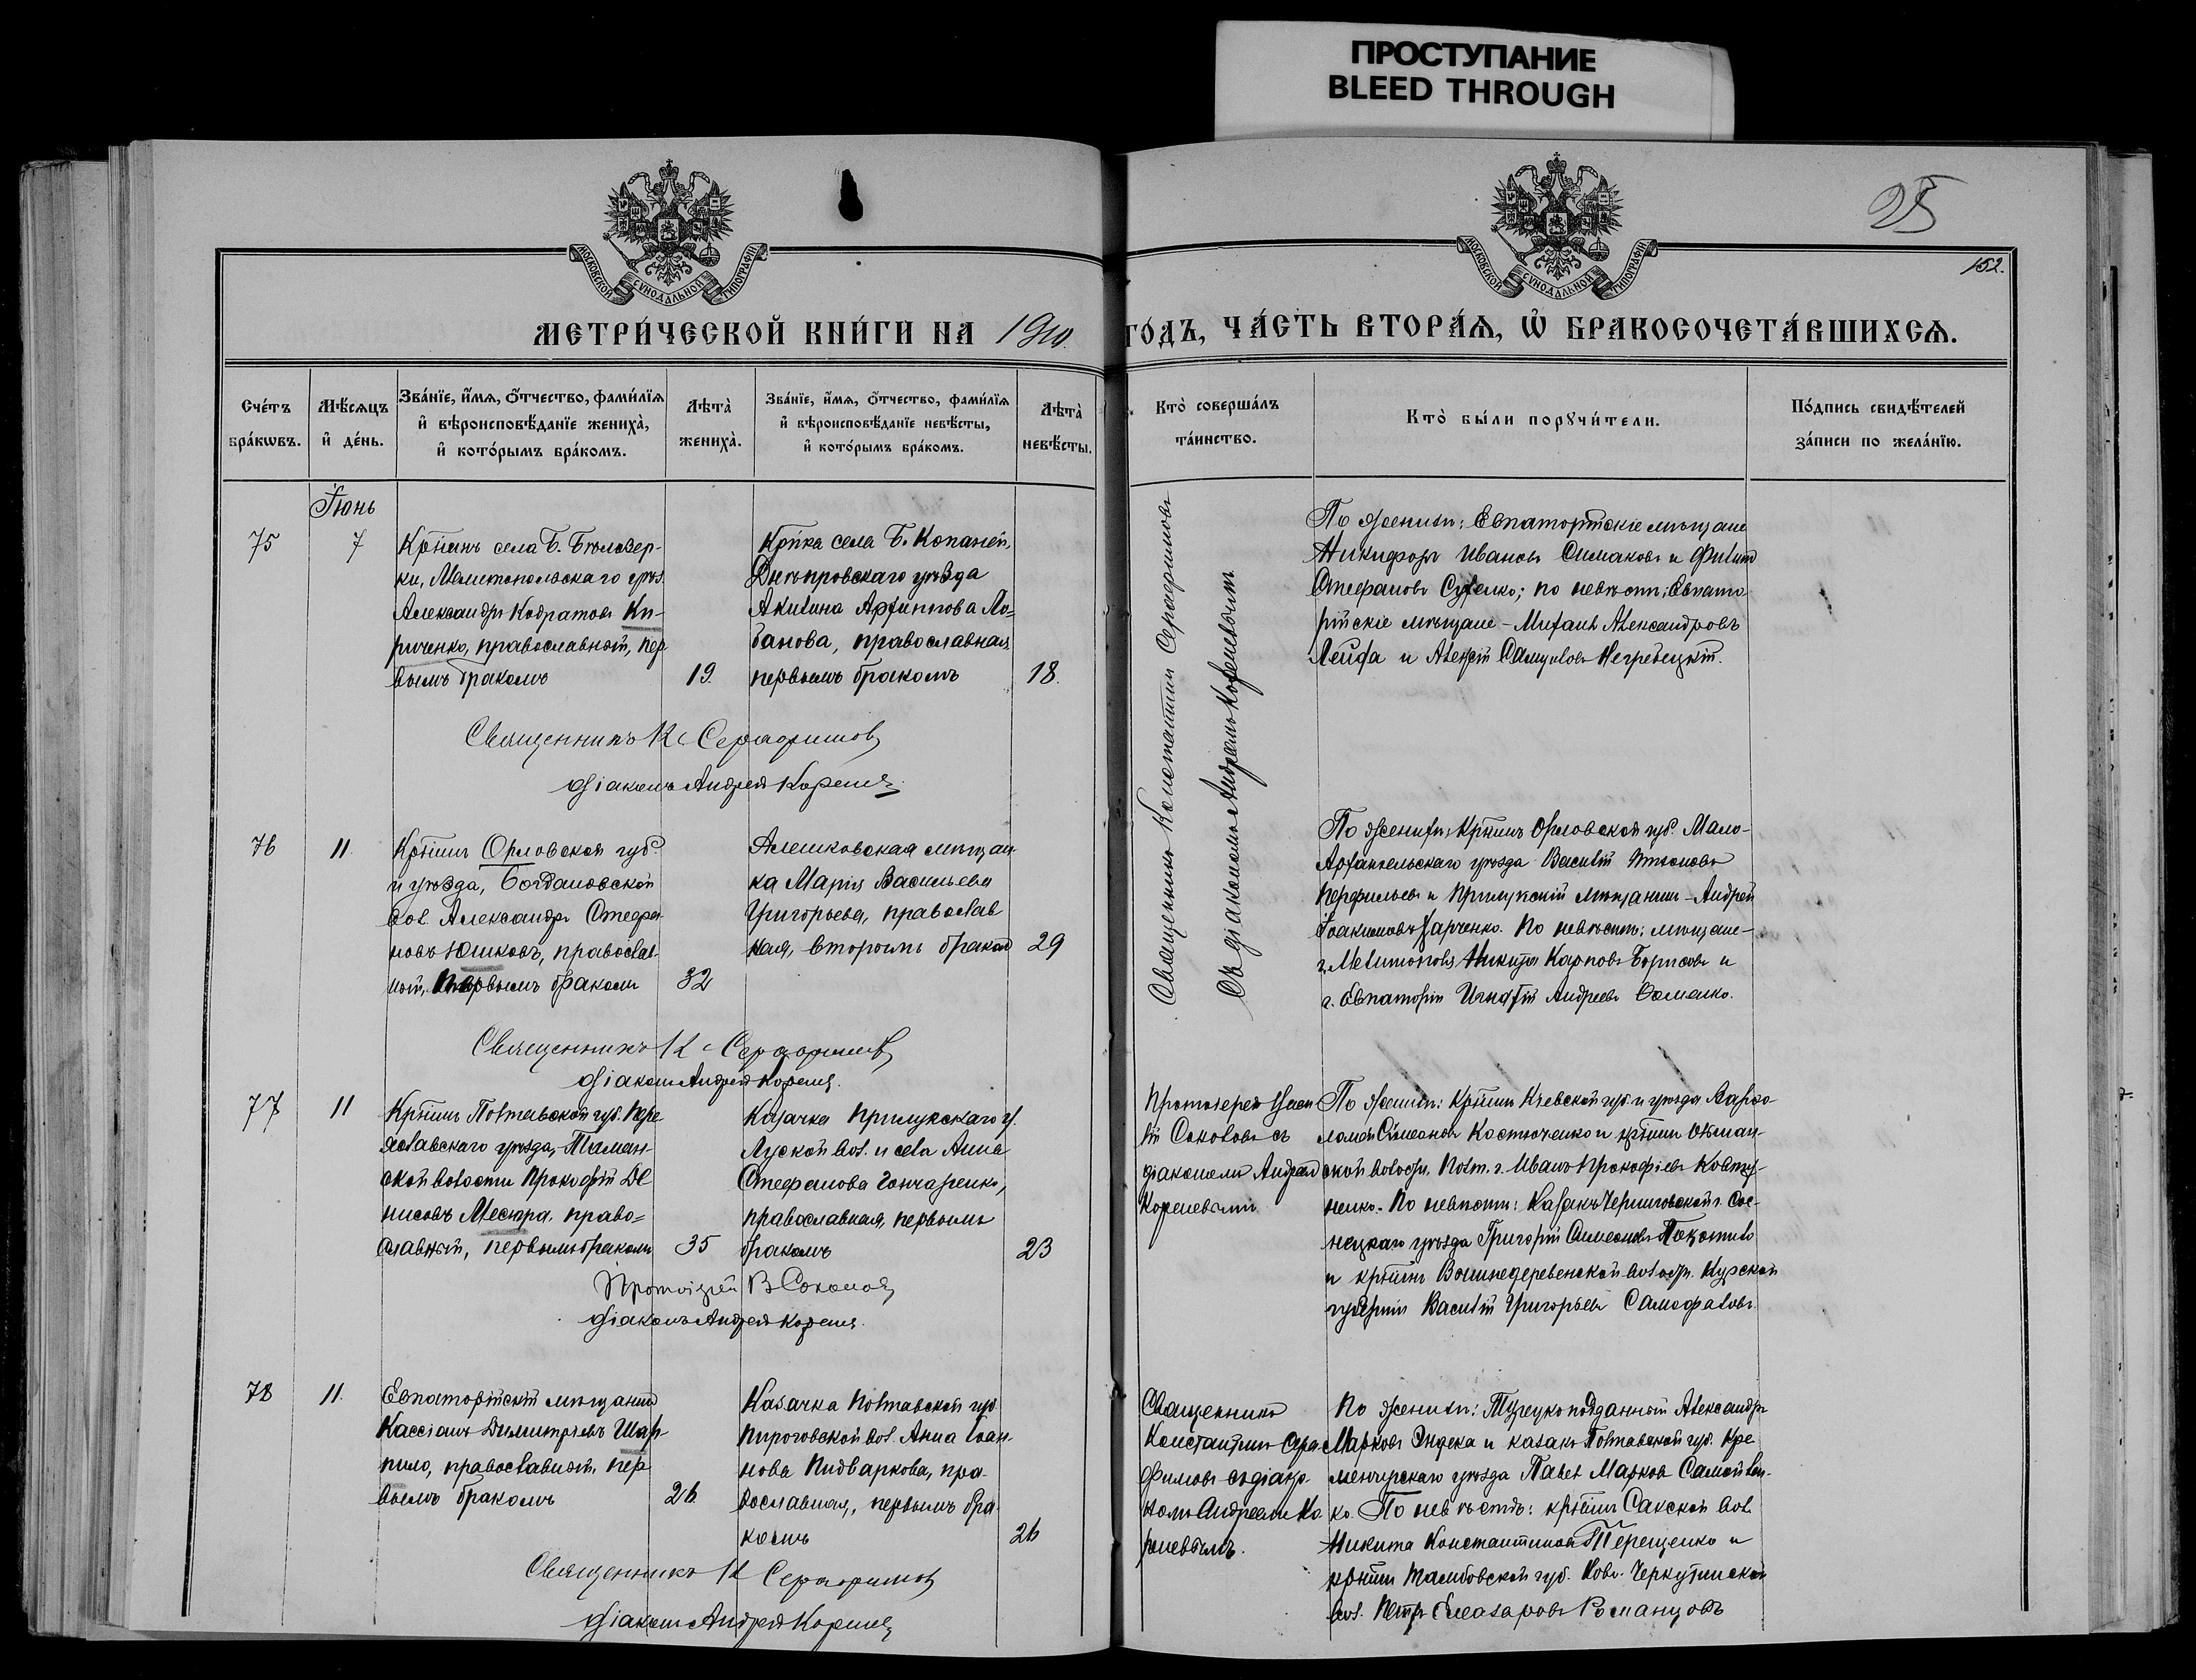 ПРОСТУПАНИЕ
BLEED THROUGH
25
152.
МОСКОВСКОЙ СУНОДАЛЬНОЙ ТИПОГРАФІИ
МОСКОВСКОЙ СУНОДАЛЬНОЙ ТИПОГРАФІИ
МЕТРИ́ЧЕСКОЙ КНИ́ГИ НА 1910.
ГО́ДЪ, ЧА́СТЬ ВТОРА́Я, Ѿ БРАКОСОЧЕТА́ВШИХСЯ.
Сче́тъ бра́кѡвъ.
Мѣ́сяцъ и҆ де́нь.
Зва́нїе, и҆́мя, ѻ҆́тчество, фами́лїя и҆ вѣроисповѣ́данїе жениха̀, и҆ кото́рымъ бра́комъ.
Лѣта̀ жениха̀.
Зва́нїе, и҆́мя, ѻ҆́тчество, фами́лїя и҆ вѣроисповѣ́данїе невѣ́сты, и҆ кото́рымъ бра́комъ.
Лѣта̀ невѣ́сты.
Кто̀ соверша́лъ та́инство.
Кто̀ бы́ли порꙋчи́тели.
По́дпись свидѣ́телей за́писи по жела́нїю.
Іюнь
75
7
Кр҃нинъ села Б. Бѣлозер-
ки, Мелитопольскаго уѣз.
Александръ Кодратовъ Ки-
риченко, православный, пер
вымъ бракомъ
19.
Кр҃нка села Б. Копаней,
Днѣпровскаго уѣзда
Акилина Архиппова Ло-
банова, православная,
первымъ бракомъ
18.
Священникъ Константинъ Серафимовъ
съ діакономъ Андреемъ Кореневымъ
По женихѣ: Евпаторійскіе мѣщане
Никифоръ Ивановъ Симаковъ и Филиппъ
Стефановъ; по невѣстѣ: Евпато-
рійскіе мѣщане - Михаилъ Александровъ
Лейфа и Алексѣй Самуиловъ Негребецкій.
Священникъ К. Серафимовъ
Діаконъ Андрей Кореневъ
76
11.
Кр҃нинъ Орловской губ.
и уѣзда, Богдановской
вол. Александръ Стефа-
новъ Юшковъ, православ-
ный, первымъ бракомъ
32
Алешковская мѣщан-
ка Марія Васильева
Григорьева, православ
ная, вторымъ бракомъ
29
По женихѣ: Кр҃нинъ Орловской губ. Мало-
Архангельскаго уѣзда Василій
Перфильевъ и Прилукскій мѣщанинъ - Андрей
Іоакимовъ Харченко. По невѣстѣ: мѣщане -
г. Мелитополя Никита Карповъ Борисовъ и
г. Евпаторіи Игнатій Андреевъ
Священникъ К. Серафимовъ
Діаконъ Андрей Кореневъ.
77
11
Кр҃нинъ Полтавской губ. Пере
яславскаго уѣзда, Ташан-
ской волости Прокофій Де
нисовъ право-
славный, первымъ бракомъ
35
Казачка Прилукскаго у.
вол. и села Анна
Стефанова Гончаренко,
православная, первымъ
бракомъ
23
Протоіерей Васи
лій Соколовъ съ
діакономъ Андреемъ
Кореневымъ
По женихѣ: кр҃нинъ Кіевской губ. и уѣзда Варѳо
ломей Симеоновъ Костюченко и кр҃нинъ
ской волости, Полт. г. Иванъ Прокофіевъ
ненко. По невѣстѣ: Казакъ Черниговской г. Сос-
ницкаго уѣзда Григорій Симеоновъ
и кр҃нинъ волости. Курской
губерніи Василій Григорьевъ
Протоіерей В Соколовъ
Діаконъ Андрей Кореневъ.
78
11.
Евпаторійскій мѣщанинъ
Кассіанъ Димитріевъ Шар-
пило, православный, пер
вымъ бракомъ
26
Казачка Полтавской губ.
Пироговской вол. Анна Іоан-
нова Пидваркова, пра-
вославная, первымъ бра-
комъ
26
Священникъ
Константинъ Сера
фимовъ съ діако-
номъ Андреемъ Ко
реневымъ.
По женихѣ: Турецкоподданный Александръ
Марковъ и казакъ Полтавской губ. Кре
менчугскаго уѣзда Павелъ Марковъ Самойлен-
ко. По невѣстѣ: кр҃нинъ Сакской вол.
Никита Константиновъ Терещенко и
кр҃нинъ Тамбовской губ. Ново-Черкутинской
вол. Петръ Елеазаровъ Романцовъ
Священникъ К Серафимовъ
Діаконъ Андрей Кореневъ